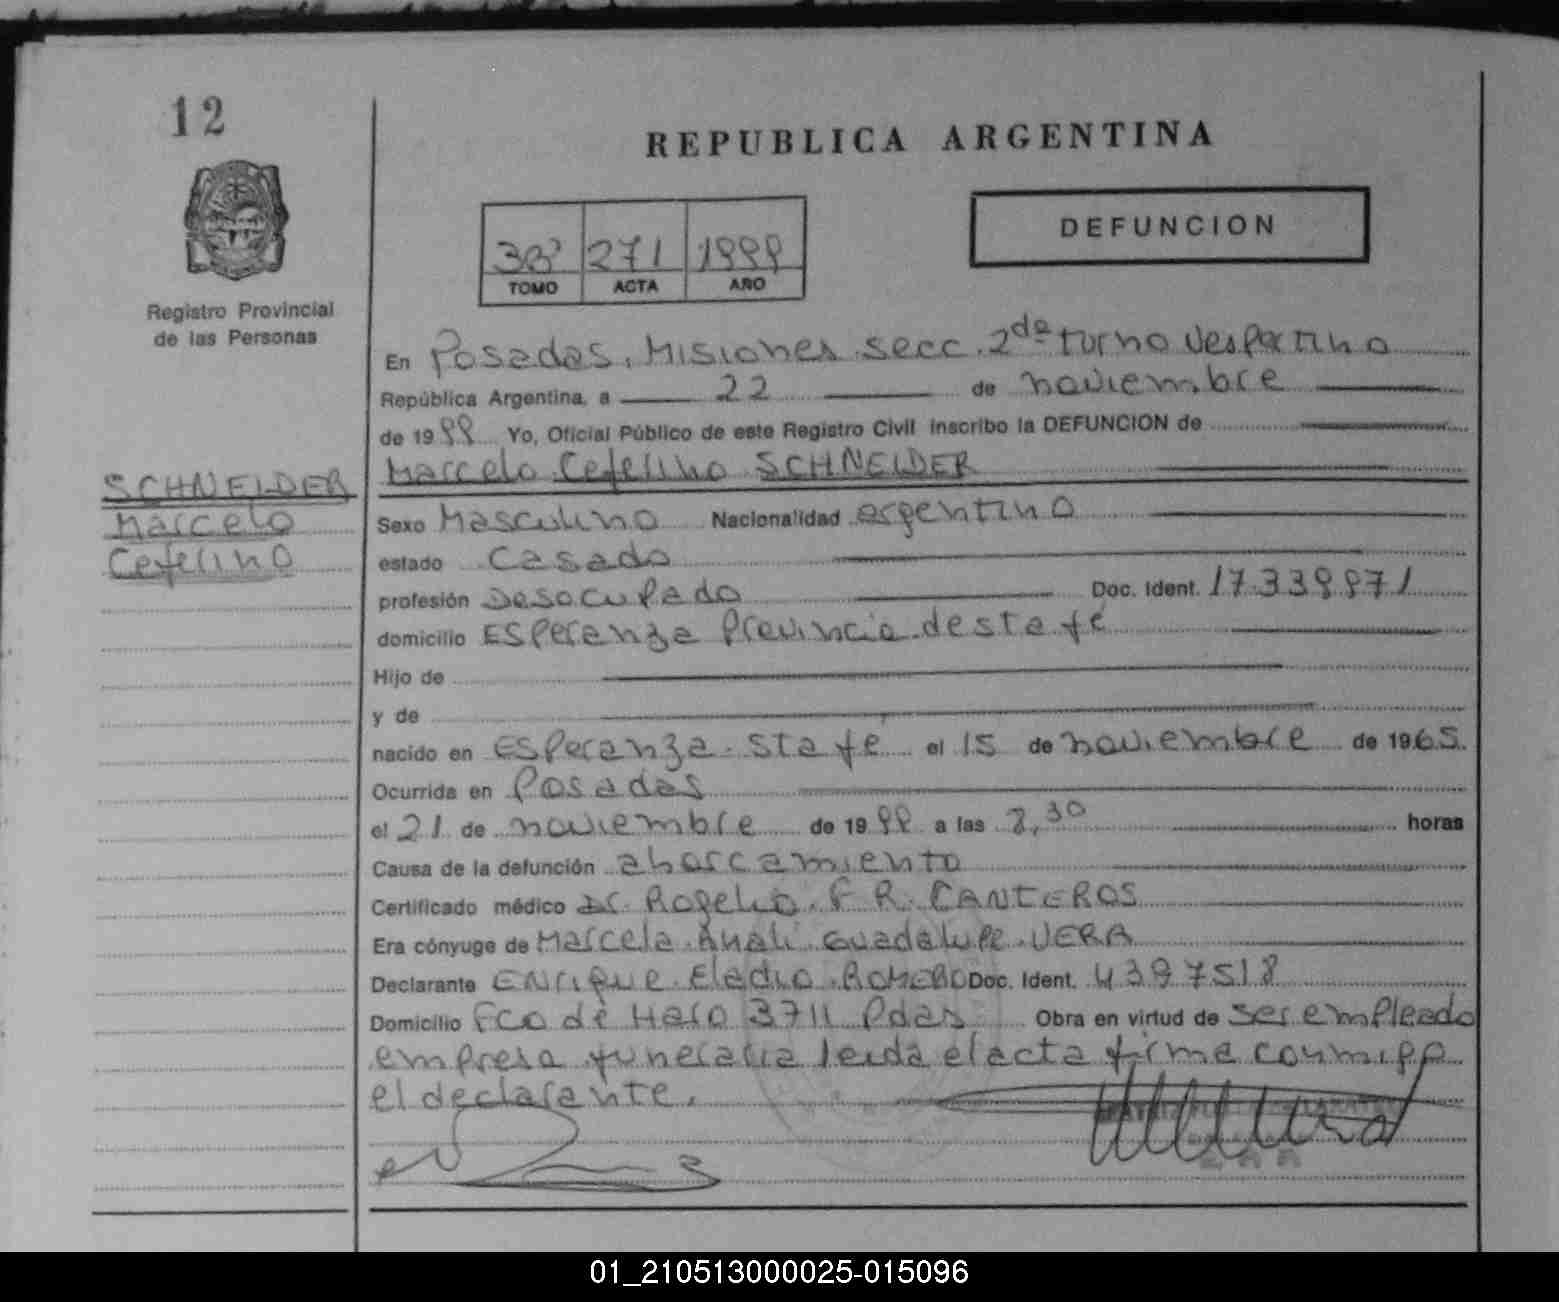 12
REPUBLICA ARGENTINA
DEFUNCION
271 1999
TOMO ACTA AÑO
Registro Provincial
de las Personas
En Posadas, Misiones secc. 2da turno Vespertino
República Argentina, a 22 de noviembre
de 1999 Yo, Oficial Público de este Registro Civil inscribo la DEFUNCION de
Marcelo Ceferino SCHNEIDER
SCHNEIDER
Marcelo
Ceferino
Sexo Masculino Nacionalidad argentino
estado Casado
profesión Desocupado Doc. Ident. 17.339.971
domicilio Esperanza Provincia de sta fé
Hijo de
y de
nacido en Esperanza. Sta fé el 15 de noviembre de 1965.
Ocurrida en Posadas
el 21 de noviembre de 1999 a las 8,30 horas
Causa de la defunción ahorcamiento
Certificado médico Dr. Rogelio. F. R. CANTEROS
Era cónyuge de Marcela Analí Guadalupe VERA
Declarante Enrique Eladio ROMERO Doc. Ident. 4397518
Domicilio Fco de Haro 3711 Pdas Obra en virtud de ser empleado
empresa funeraria leida el acta firma conmigo
el declarante.
01_210513000025-015096